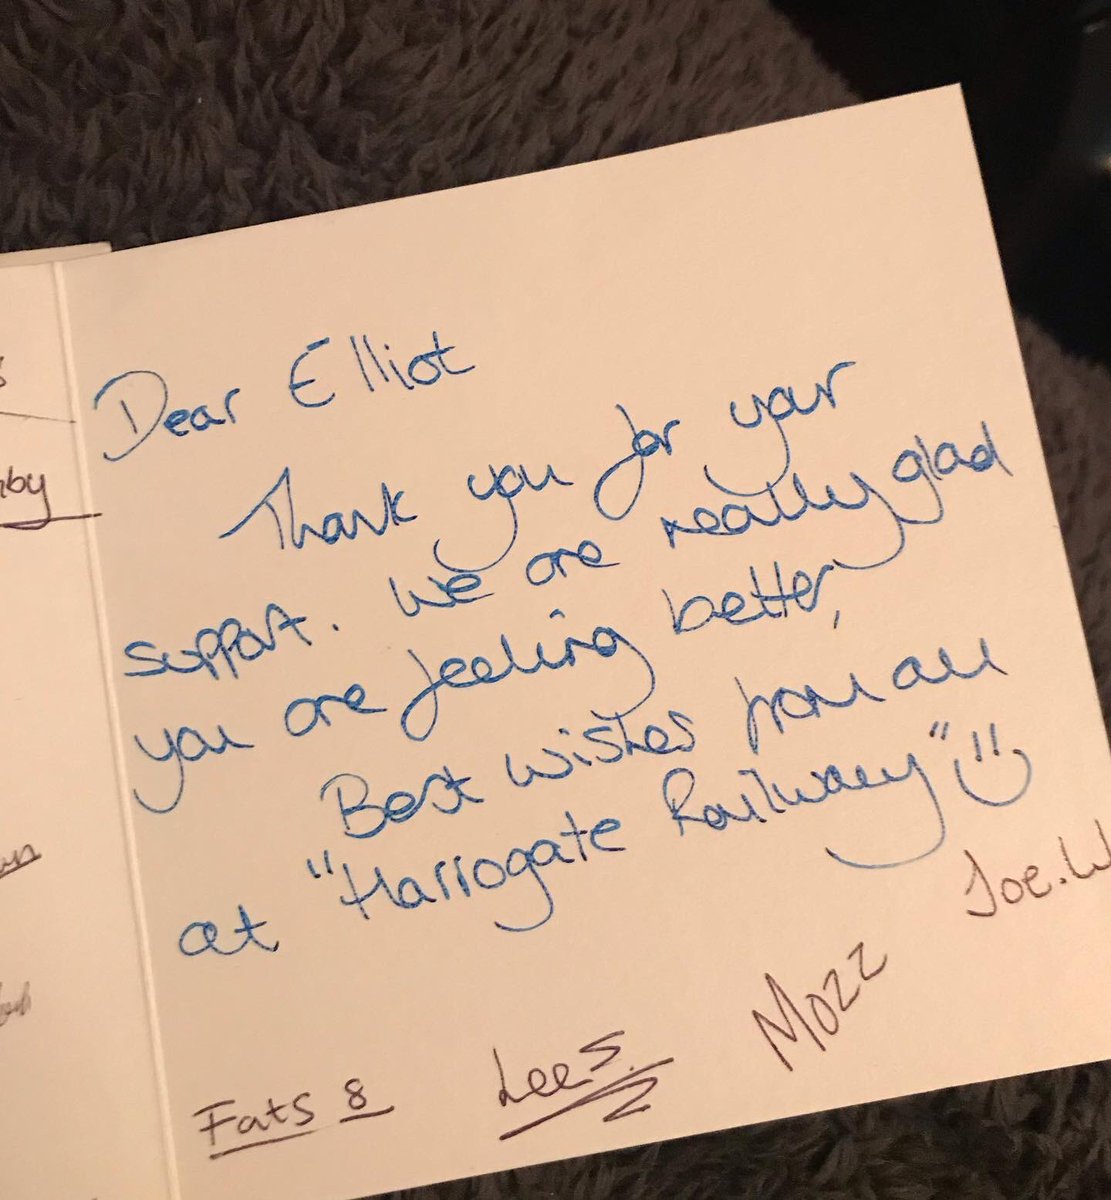 Dear Elliot
Thank you for your
support. We are really glad
you are feeling better,
Best wishes from all
at "Harrogate Railway"
Joe.W
Mozz
Lee S.
Fats 8